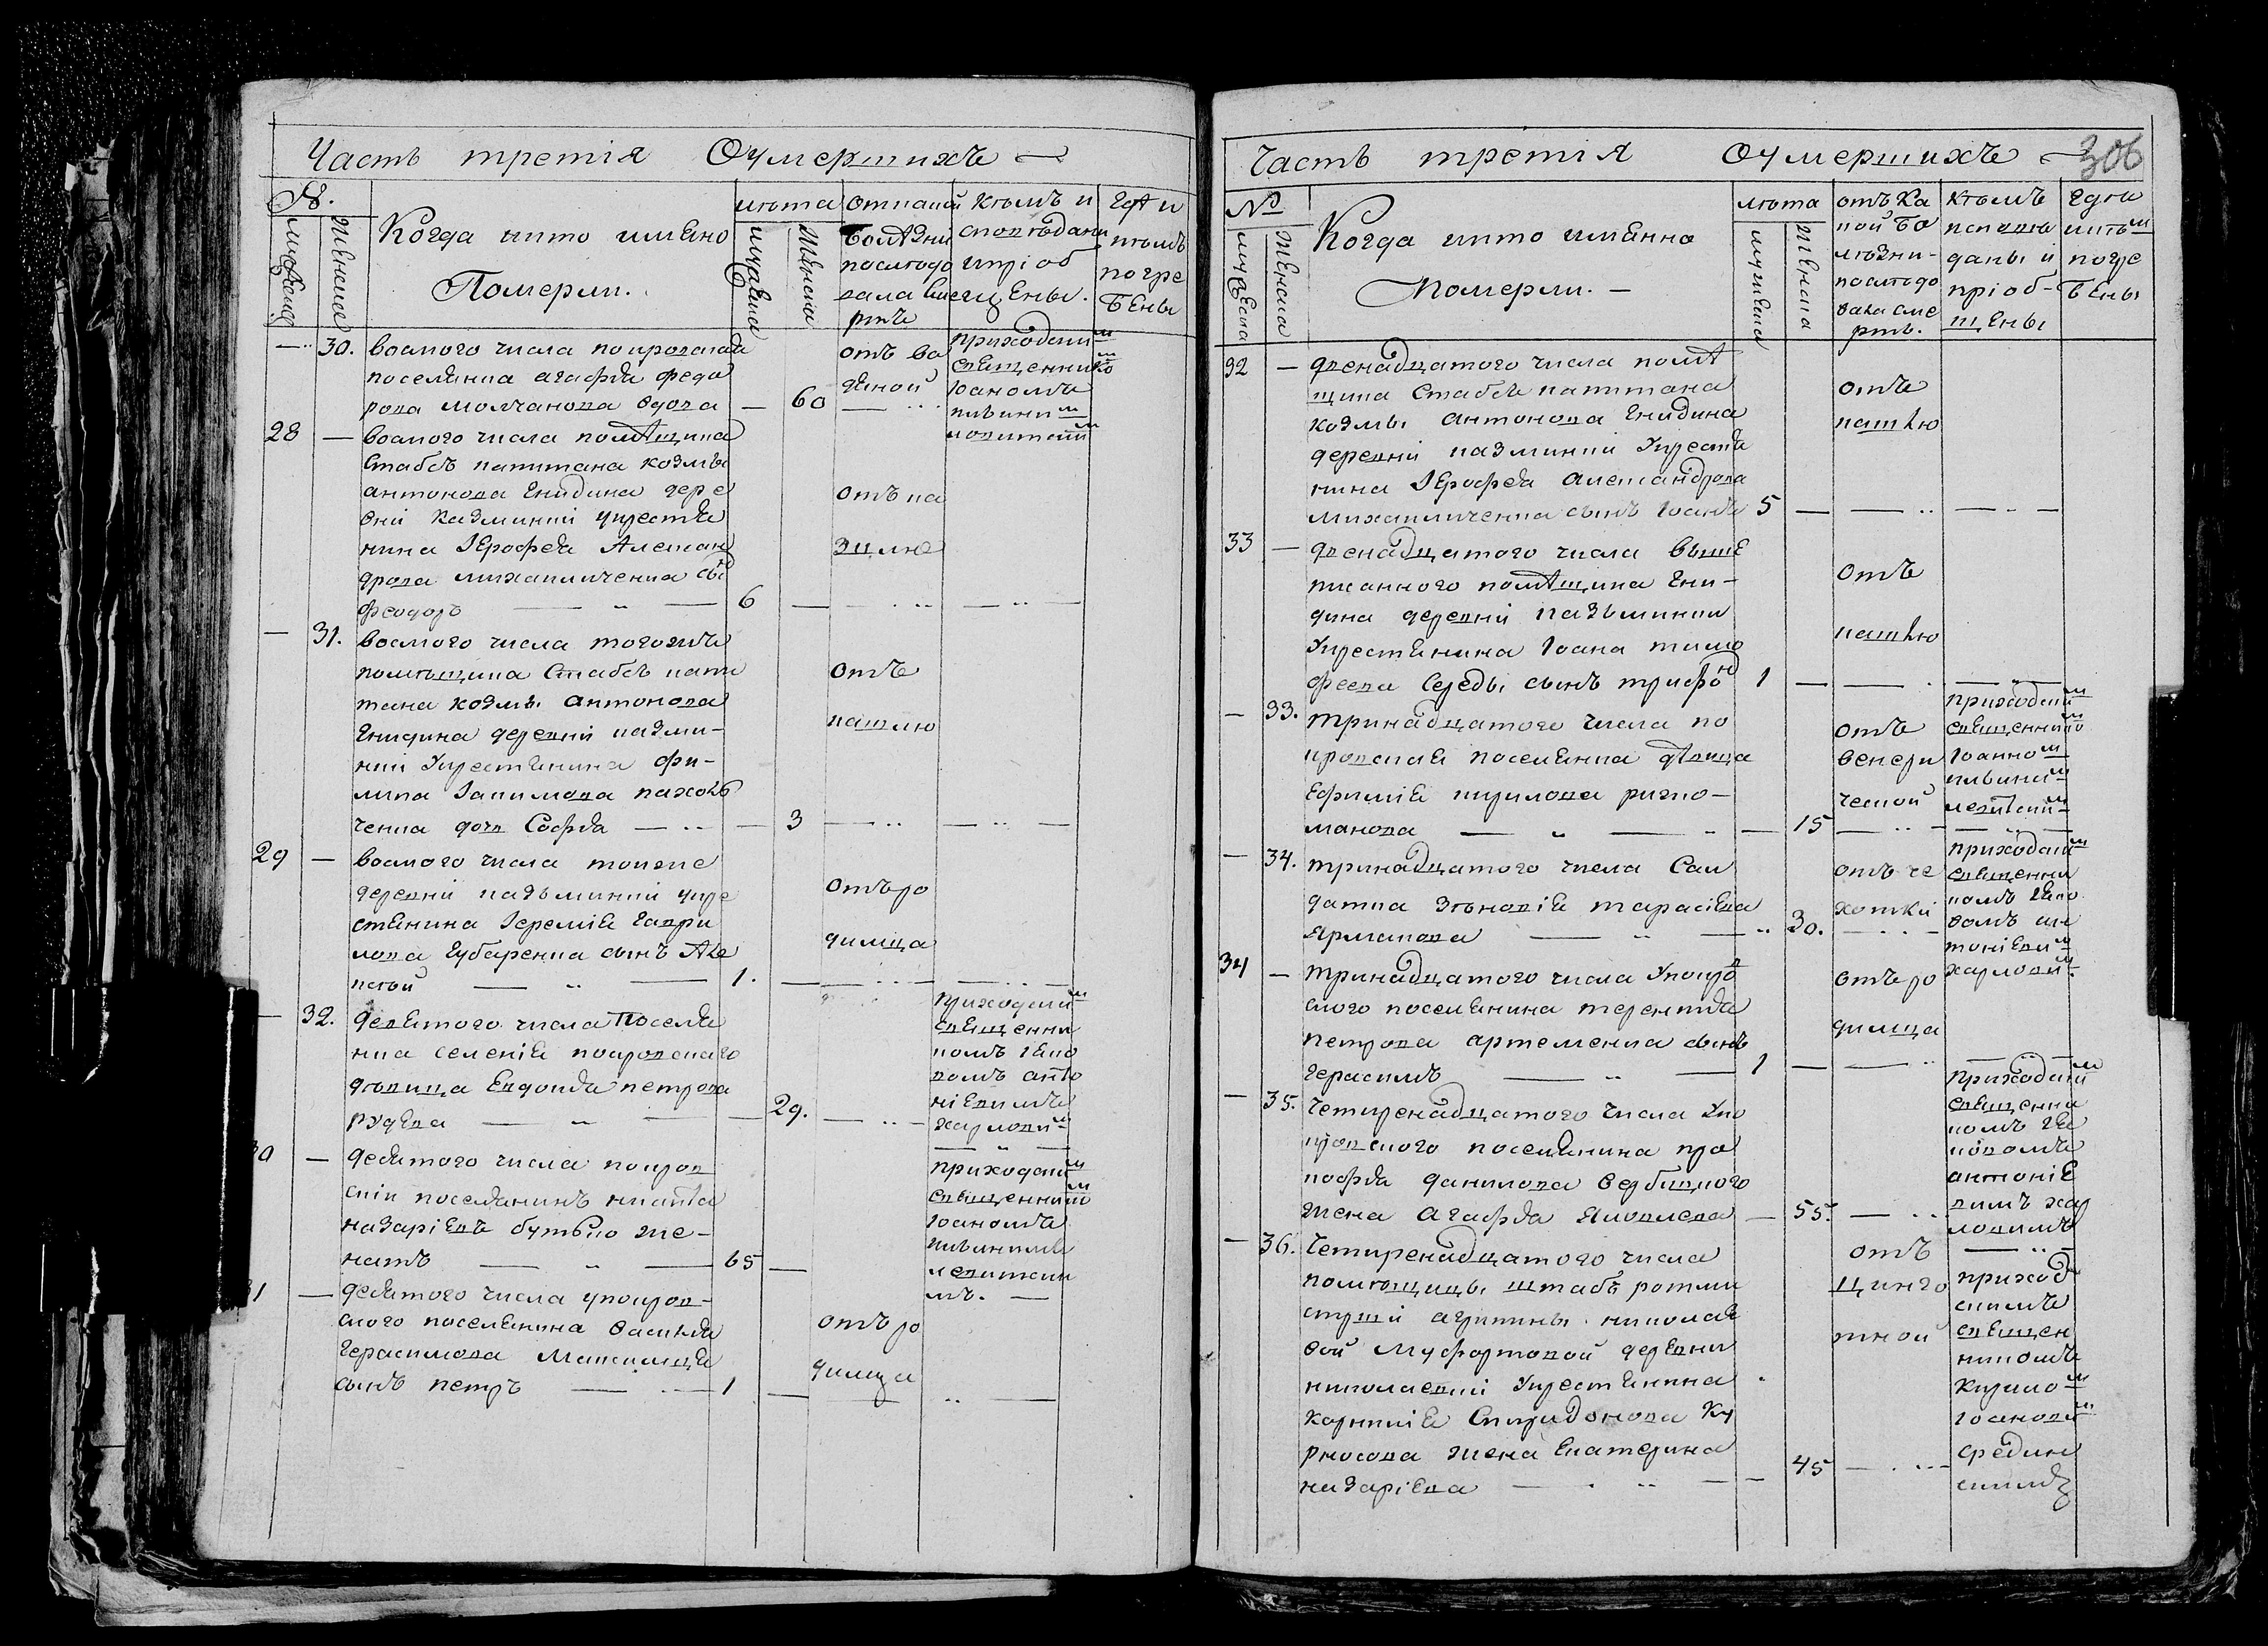 Часть третія Оумершихъ
№.
мужеска
женска
Когда икто имѣно
Померли.
мужеска
женска
лѣта
Отпакой
болѣзни
послѣдо
вала сме
рть
Кѣмъ и
споѣдани
ипріоб
щены.
Гдѣ и
кѣмъ
погре
бены
30. восмого числа покровская
поселянка агафія федо
рова молчанова вдова — 60
отъ во
дяной
приходским
священнико
Іоаномъ
28 — восмого числа помѣщика
Стабсъ капитана козмы
антонова Гнидина дере
вни Казминки укрестья
нина Іерофея Алексан
дрова михаиличенка сы
феодоръ — 6
отъ ка
31. восмого числа тогожъ
помѣщика Стабсъ капи
тана козмы антонова
Гнидина деревни казми-
нки укрестьянина фи-
липа
ченка дочь Софія — 3
отъ
кашлю
29 — восмого числа тойже
деревни казьминки укре
стьянина Іереміи Гаври
лова Губаренка сынъ Але
ксѣй — 1.
отъ ро
димца
32. девятого числа поселя
нка селенія покровскаго
дѣвица Евдокія петрова
рудева — 29.
приходским
священни
комъ Іако
вомъ анто
ніевимъ
харлови
девятого числа покров
скій поселянинъ никита
назаріевъ бутько же-
натъ — 65
приходским
священнико
Іоаномъ
левитски
мъ. —
девятого числа упокров-
ского поселянина василія
Герасимова Максимця
сынъ петръ — 1
отъ ро
димца
Часть третія Оумершихъ 306
№
мужеска
женска
Когда икто имѣнно
Померли. —
лѣта
мужеска
женска
отъ ка
кой бо
лѣзни-
послѣдо
вала сме
рть.
Кѣмъ
исповѣ
даны и
пріоб-
щены
Гдѣи
икѣм
погре
бены
32 — двенадцатого числа помѣ
щика Стабсъ капитана
козмы антонова Гнидина
деревни казминки укрестья
нина Іерофея александрова
михаиличенка сынъ Іоанъ 5 —
отъ
кашлю
33 — двенадцатого числа выше
писанного помѣщика Гни-
дина деревни казьминки
укрестянина Іоана тимо
феева Середы сынъ трифо 1 —
отъ
кашлю
— 33. тринадцатого числа по
кровская поселянка дѣвица
Ефимія кирилова ригно-
манова — 15
отъ
венери
ческой
приходским
священнико
Іоанном
левитским
— 34. тринадцатого числа Сал
датка Зѣновія тарасіева
ярмакова — 30.
отъ че
хотки
приходским
священни
комъ Іако
вомъ ан
тоніевим
харлови.
34 — тринадцатого числа Упокро
ского поселянина терентія
петрова артеменка сынъ
герасимъ — 1 —
отъ ро
димца
— 35. четиренадцатого числа Упо
кровского поселянина про
кофія данилова
жена агафія яковлева — 55.
приходским
священни
комъ Іа
ковомъ
антоніе
вимъ хар
ловимъ
— 36. четиренадцатого числа
помѣщицы штабъ ротми
стрши агрипины николае
вой Мусфортовой деревни
николаевки Укрестянина
корнилія Спиридонова Ку
рносова жена екатерина
назаріева — 45
отъ
цинго
тной
приход
скимъ
священ
никомъ
Кирило
Іоанови
средин
скимъ